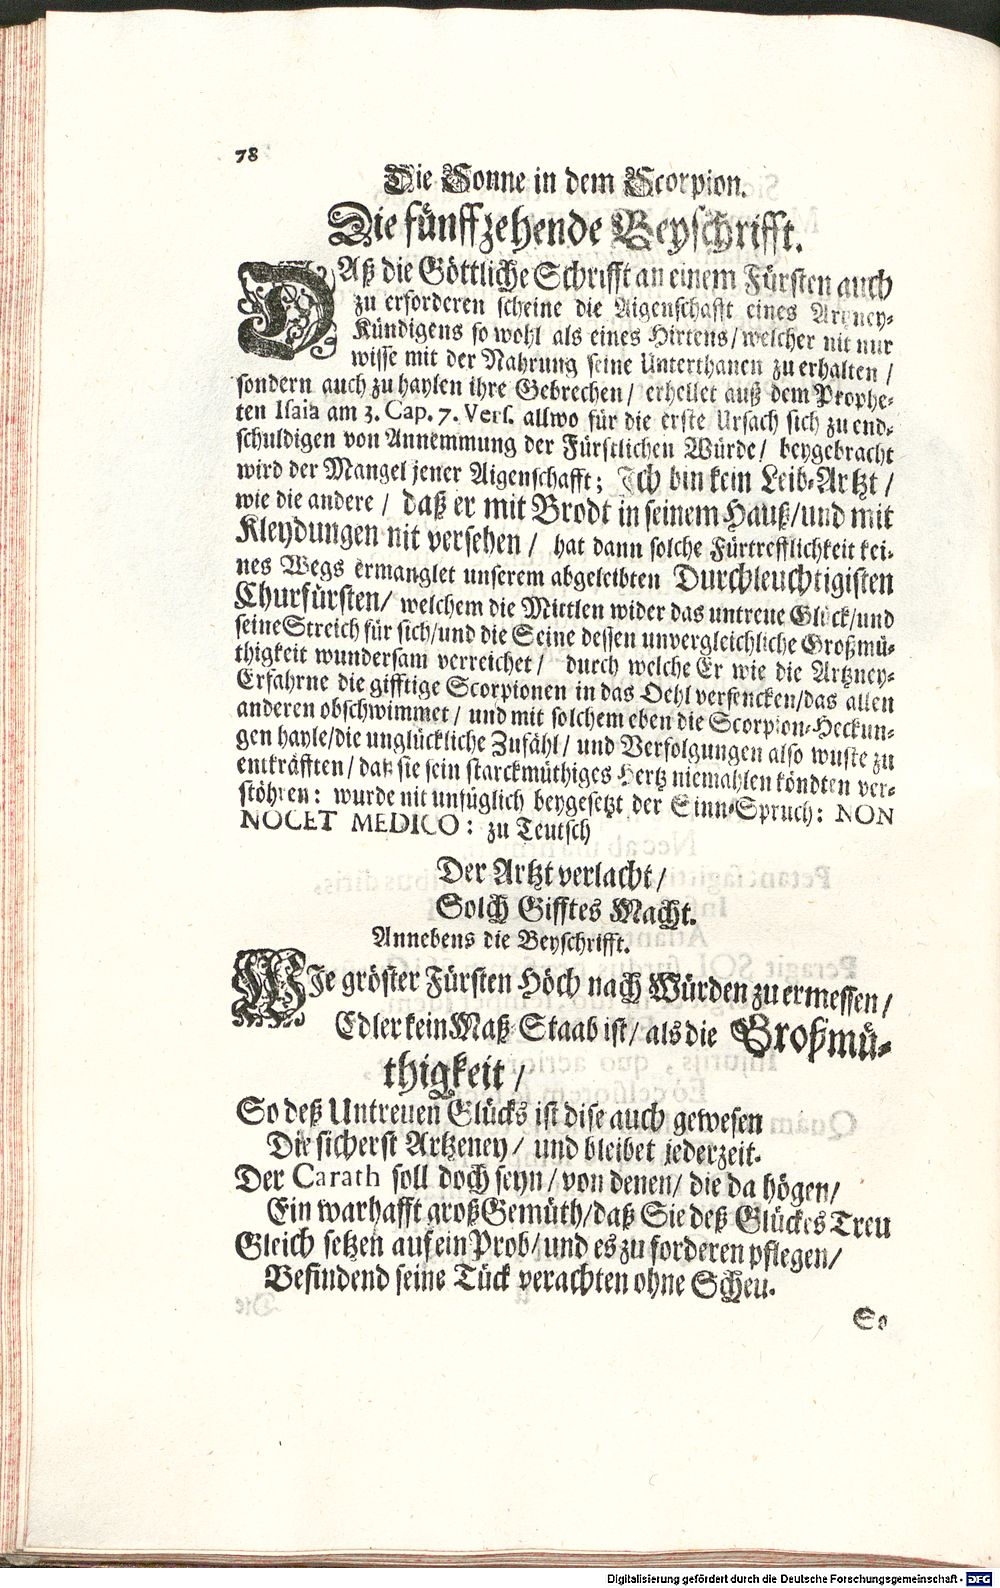 78
Die Sonne in dem Scorpion.
Die fünffzehende Beyschrifft.
DAß die Göttliche Schrifft an einem Fürsten auch
zu erforderen scheine die Aigenschafft eines Artzney-
Kündigens so wohl als eines Hirtens / welcher nit nur
wisse mit der Nahrung seine Unterthanen zu erhalten /
sondern auch zu haylen ihre Gebrechen / erhellet auß dem Prophe-
ten Isaia am 3. Cap. 7. Vers. allwo für die erste Ursach sich zu end-
schuldigen von Annemmung der Fürstlichen Würde / beygebracht
wird der Mangel jener Aigenschafft; Ich bin kein Leib-Artzt /
wie die andere / daß er mit Brodt in seinem Hauß / und mit
Kleydungen nit versehen / hat dann solche Fürtrefflichkeit kei-
nes Wegs ermanglet unserem abgeleibten Durchleuchtigisten
Churfürsten / welchem die Mittlen wider das untreue Glück / und
seine Streich für sich / und die Seine dessen unvergleichliche Großmü-
thigkeit wundersam verreichet / durch welche Er wie die Artzney-
Erfahrne die gifftige Scorpionen in das Oehl versencken / das allen
anderen obschwimmet / und mit solchem eben die Scorpion-Heckun-
gen hayle / die unglückliche Zufähl / und Verfolgungen also wuste zu
entkräfften / daß sie sein starckmüthiges Hertz niemahlen köndten ver-
stöhren: wurde nit unfüglich beygesetzt der Sinn-Spruch: NON
NOCET MEDICO: zu Teutsch
Der Artzt verlacht /
Solch Gifftes Macht.
Annebens die Beyschrifft.
WIe gröster Fürsten Höch nach Würden zu ermessen /
Edler kein Maß-Staab ist / als die Großmü-
thigkeit /
So deß Untreuen Glücks ist dise auch gewesen
Die sicherst Artzeney / und bleibet jederzeit.
Der Carath soll doch seyn / von denen / die da högen /
Ein warhafft groß Gemüth / daß Sie deß Glückes Treu
Gleich setzen auf ein Prob / und es zu forderen pflegen /
Befindend seine Tück verachten ohne Scheu.
So
Digitalisierung gefördert durch die Deutsche Forschungsgemeinschaft - DFG